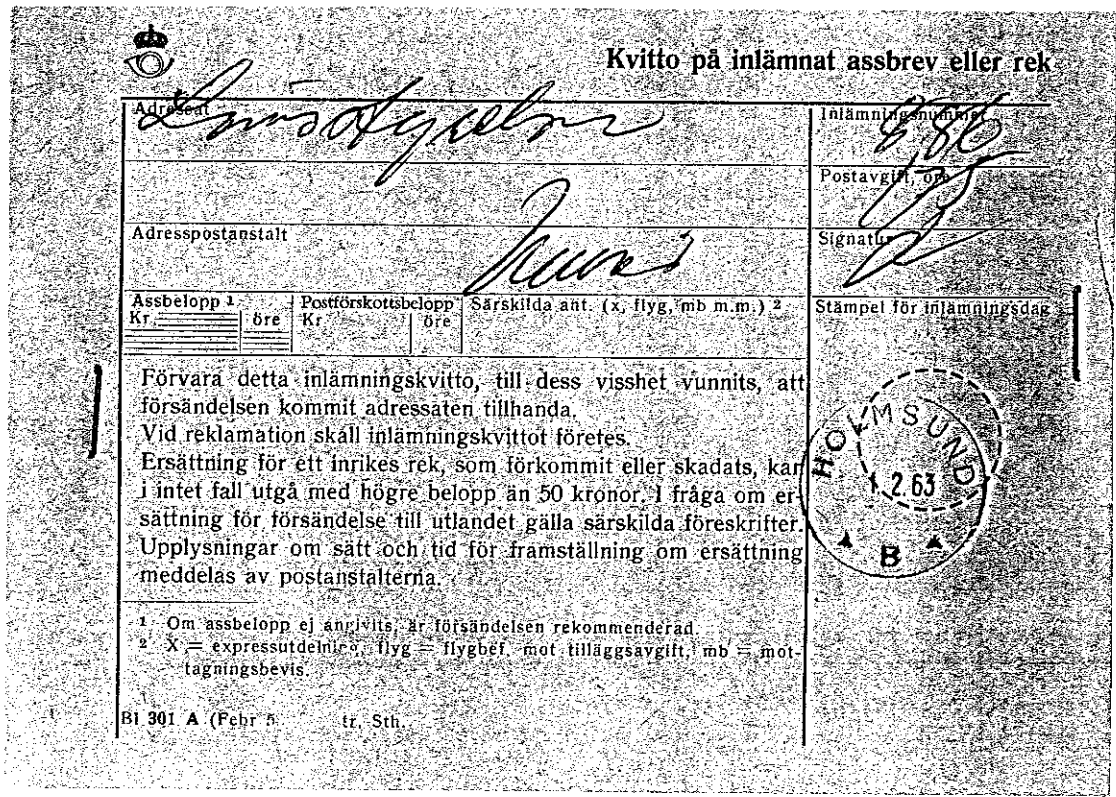 Kvitto på inlämnat assbrev eller rek
Adressat
Länsstyrelsen
Inlämningsnummer
886
Postavgift, öre
Adresspostanstalt
Signatur
Assbelopp 1
Kr
öre
Postförskottsbelopp
Kr
öre
Särskilda ant. (x, flyg, mb m.m.) 2
Stämpel för inlämningsdag
Förvara detta inlämningskvitto, till dess visshet vunnits, att
försändelsen kommit adressaten tillhanda.
Vid reklamation skall inlämningskvittot företes.
Ersättning för ett inrikes rek, som förkommit eller skadats, kan
i intet fall utgå med högre belopp än 50 kronor. I fråga om er-
sättning för försändelse till utlandet gälla särskilda föreskrifter.
Upplysningar om sätt och tid för framställning om ersättning
meddelas av postanstalterna.
HOLMSUND
1 2.63
B
1 Om assbelopp ej angivits, är försändelsen rekommenderad.
2 X = expressutdelning, flyg = flygbef. mot tilläggsavgift, mb = mot-
tagningsbevis.
Bl 301 A (Febr 5 tr, Sth.